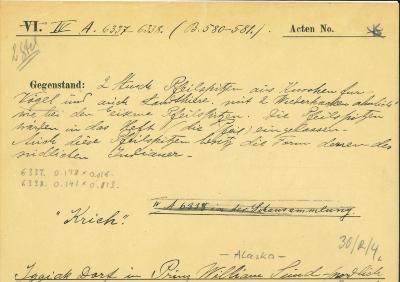 VI. IV A. 6337-6338. (B. 580-581.) Acten No.
2 Stck
Gegenstand: 2 Stück Pfeilspitzen aus Knochen fur
Vögel und auch Landthiere, mit 2 Wiederhacken ähnlich
wie bei den Pfeilspitzen. Die Pfeilspitzen
in das Heft (die) eingelassen.
Auch diese Pfeilspitzen die Form deren des
südlichen Indianer-
6337. 0.178 x 0.016.
6338. 0.141 x 0.013.
"A 6338 in der Schausammlung.
"Krich".
- Alaska -
30/R/4
Dorf in Prinz William Sund -